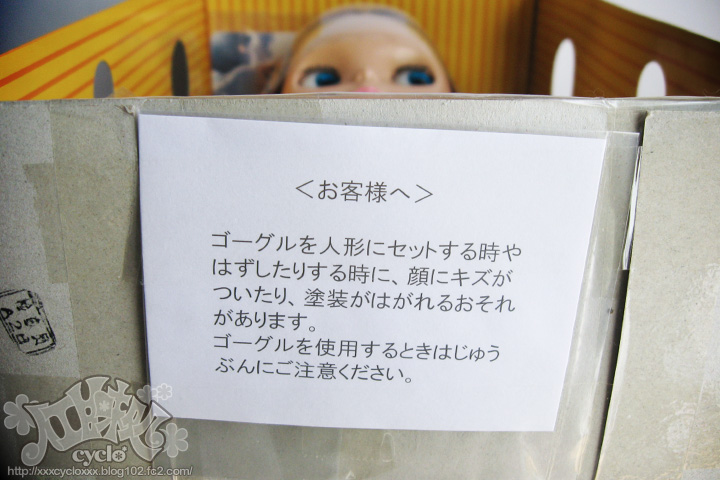 ＜お客様へ＞
ゴーグルを人形にセットする時や
はずしたりする時に、顔にキズが
ついたり、塗装がはがれるおそれ
があります。
ゴーグルを使用するときはじゅう
ぶんにご注意ください。
cyclo
http://xxxcycloxxx.blog102.fc2.com/